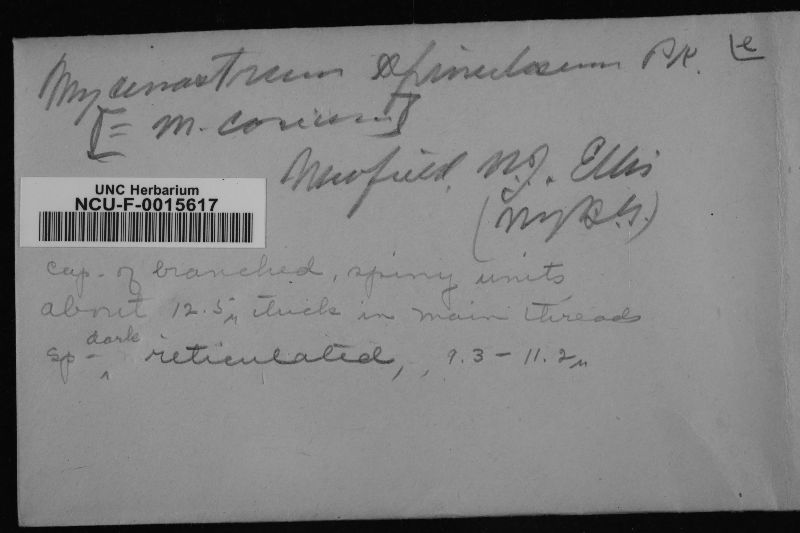 Mycenastrum spinulosum Pk. e
[= M. corium]
Newfield, N.J. Ellis
(NYBG.)
UNC Herbarium
NCU-F-0015617
Cap. of branched, spiny units
about 12.5µ thick in main threads
Sp - dark reticulated, 9.3 - 11.2µ